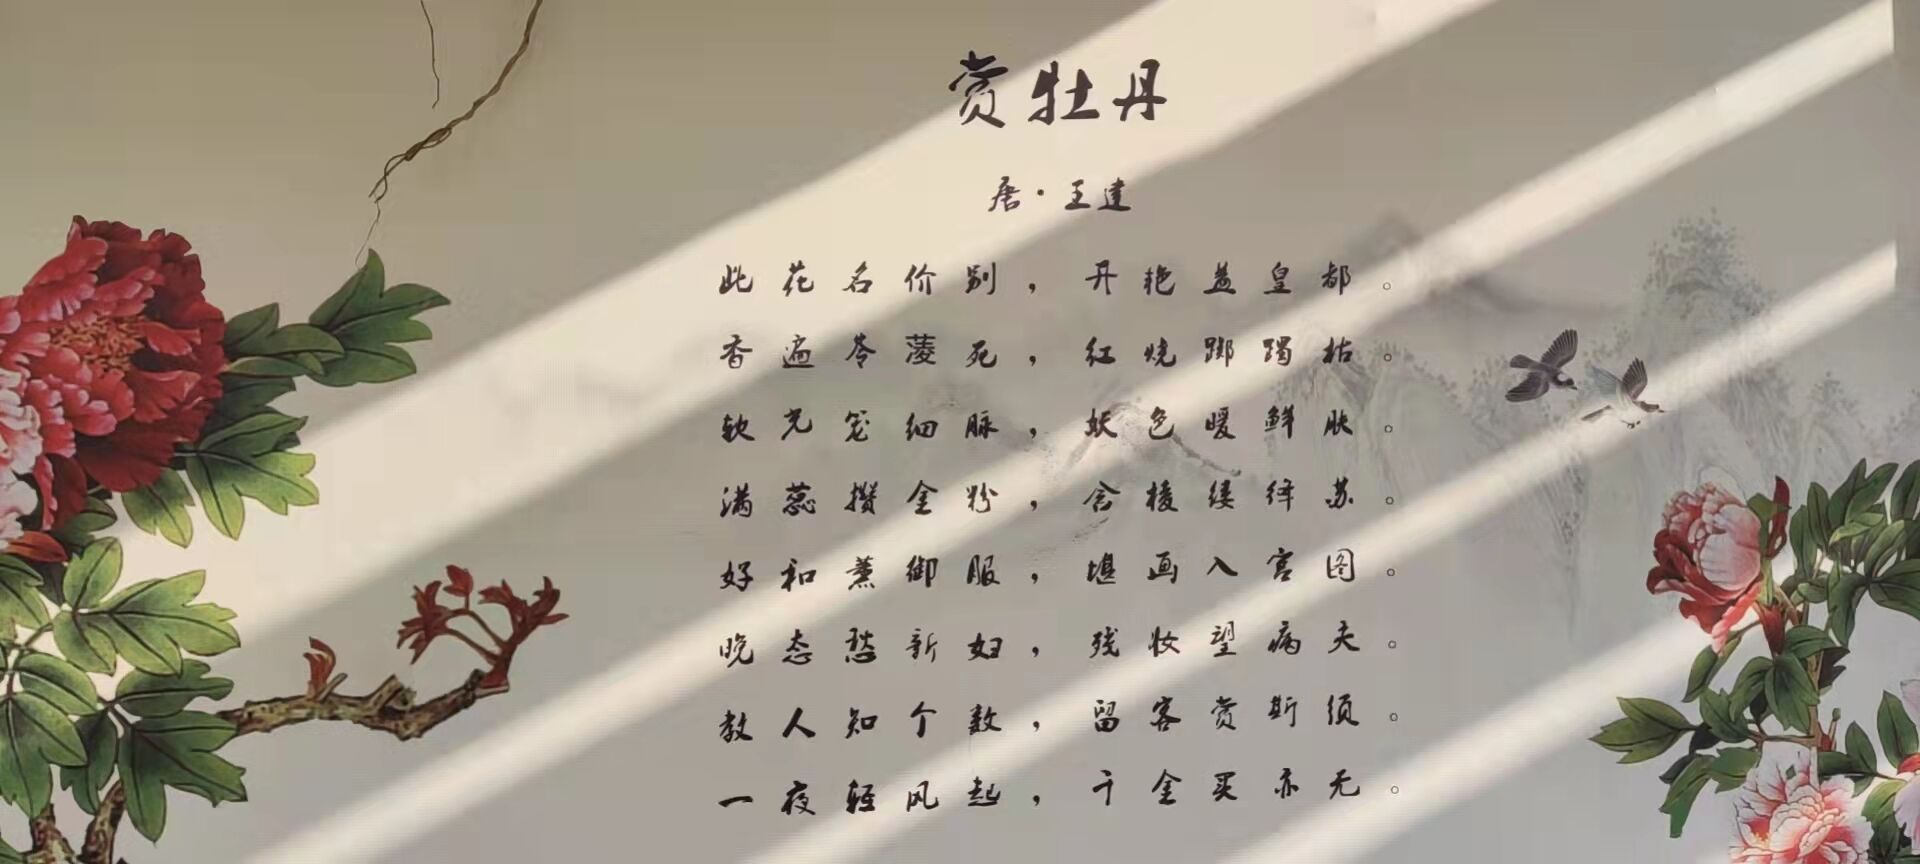 赏牡丹
唐·王建
此花名价别，开艳益皇都。
香遍苓菱死，红烧踯躅枯。
软光笼细脉，妖色暖鲜肤。
满蕊攒金粉，含棱缕绛苏。
好和薰御服，堪画入宫图。
晚态愁新妇，残妆望病夫。
教人知个数，留客赏斯须。
一夜轻风起，千金买亦无。